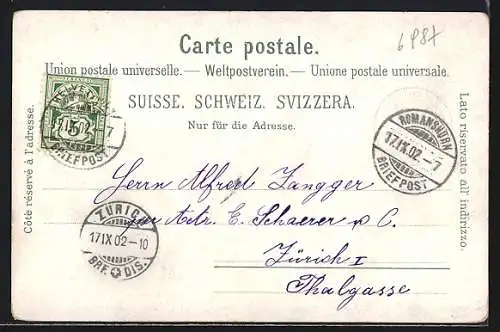 6987
Carte postale.
Union postale universelle. — Weltpostverein. — Unione postale universale.
SUISSE. SCHWEIZ. SVIZZERA.
Nur für die Adresse.
Côté réservé à l'adresse.
Lato riservato all' indirizzo.
HELVETIA
5
BRIEFPOST
ROMANSHORN
17.IX.02.-7
BRIEFPOST
ZÜRICH
17.IX.02.-10
BRF. DIS.
Herrn Alfred Zangger
zur Adr. C. Schaerer & C.
Zürich I
Thalgasse